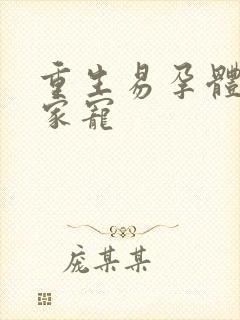 重生易孕體
家寵
庞某某